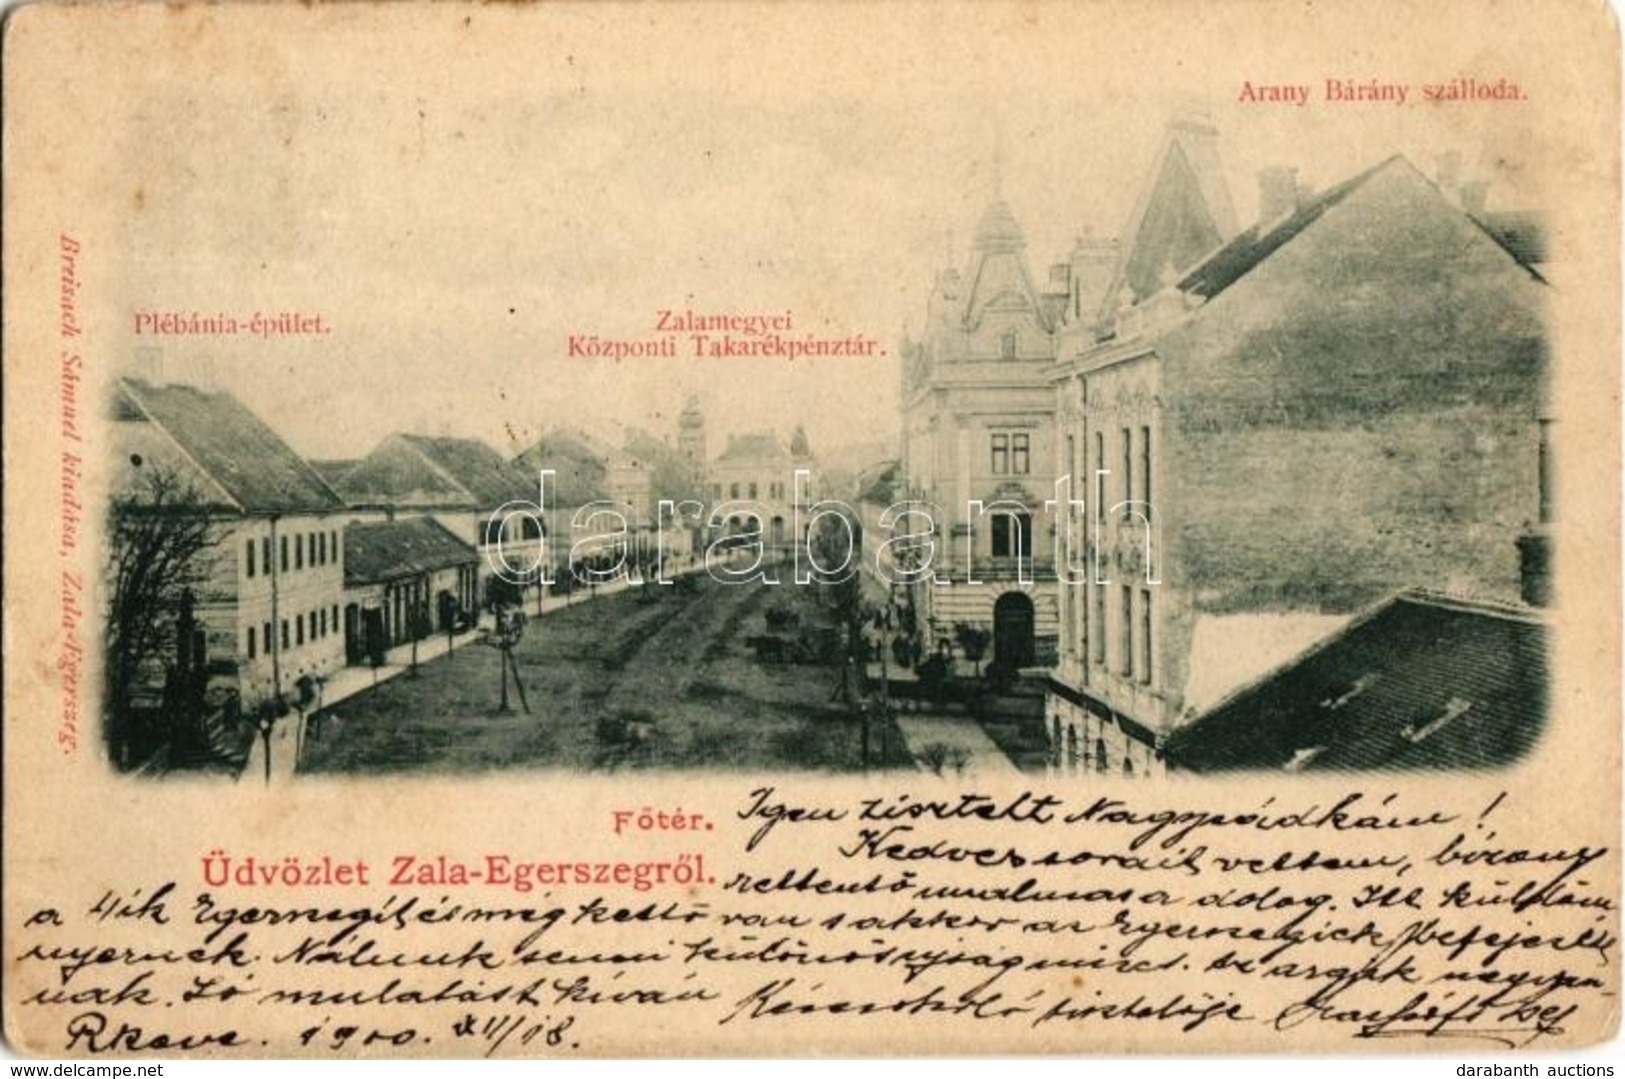 Arany Bárány szálloda.
Plébánia-épület.
Zalamegyei
Központi Takarékpénztár.
Breisach Sámuel kiadása, Zala-Egerszeg.
darabanth
Főtér.
Üdvözlet Zala-Egerszegről.
Igen tisztelt Nagysádkám!
Kedves sorait vettem, bizony
rettentő unalmas a dolog. Itt küldöm
a 4ik Egerszegit és még kettő van s akkor az Egerszegiek befejezést
nyernek. Nálunk semmi különös ujság nincs. Az
nak. Jó mulatást kíván tisztelője
1900. XII/18.
delcampe.net
darabanth auctions